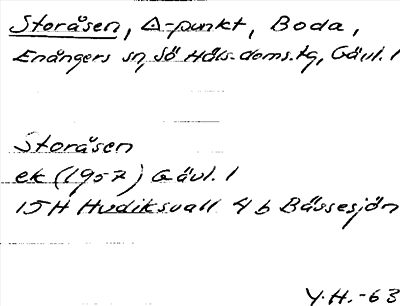 Storåsen, Δ-punkt, Boda,
Enångers sn, Sö Häls. doms.tg, Gävl. l
Storåsen
ek (1957) Gävl. l
15H Hudiksvall 4b Bässesjön
Y.H. -63